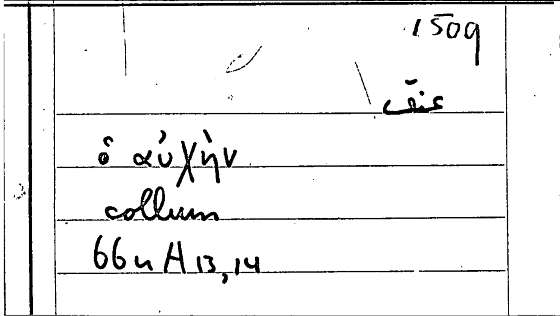 1509
عنق
ὁ αὐχὴν
collum
66u A 13, 14